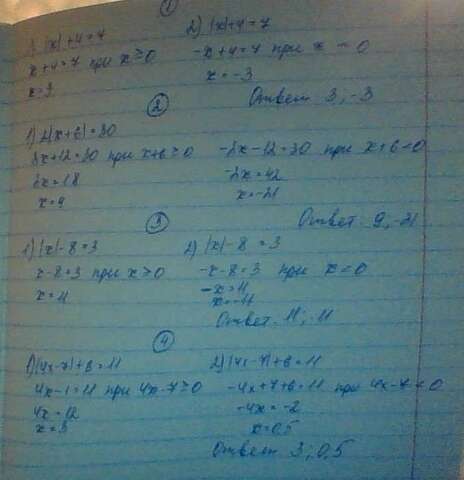 ①
1) |x|+4=7 2) |x|+4=7
x+4=7 при x≥0 -x+4=7 при x < 0
x=3 x=-3
Ответ 3; -3
②
1) 2|x+6|=30
2x+12=30 при x+6≥0 -2x-12=30 при x+6<0
2x=18 -2x=42
x=9 x=-21
Ответ. 9; -21
③
1) |x|-8=3 2) |x|-8=3
x-8=3 при x≥0 -x-8=3 при x<0
x=11 -x=11
x=-11
Ответ. 11; -11
④
1) |4x-7|+6=11 2) |4x-7|+6=11
4x-1=11 при 4x-7≥0 -4x+7+6=11 при 4x-7<0
4x=12 -4x=-2
x=3 x=0,5
Ответ 3; 0,5